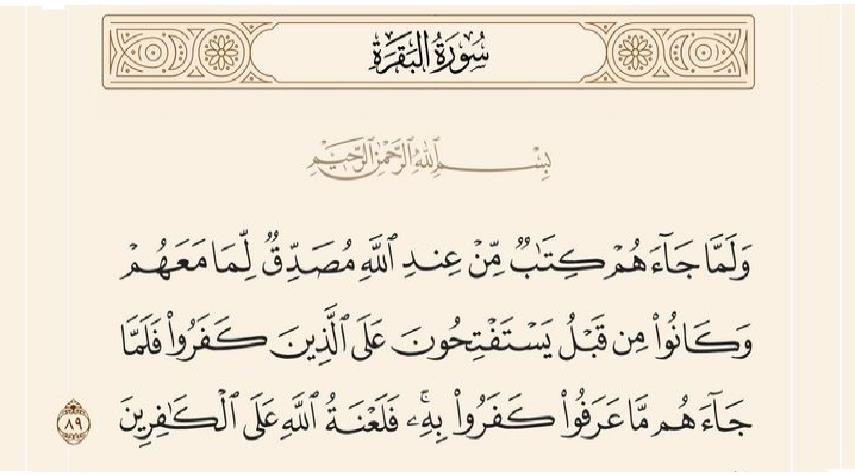 سُورَةُ البَقَرَةِ
بِسْمِ ٱللَّهِ ٱلرَّحْمَٰنِ ٱلرَّحِيمِ
وَلَمَّا جَآءَهُمْ كِتَٰبٌ مِّنْ عِندِ ٱللَّهِ مُصَدِّقٌ لِّمَا مَعَهُمْ
وَكَانُوا۟ مِن قَبْلُ يَسْتَفْتِحُونَ عَلَى ٱلَّذِينَ كَفَرُوا۟ فَلَمَّا
جَآءَهُم مَّا عَرَفُوا۟ كَفَرُوا۟ بِهِۦۚ فَلَعْنَةُ ٱللَّهِ عَلَى ٱلْكَٰفِرِينَ ٨٩